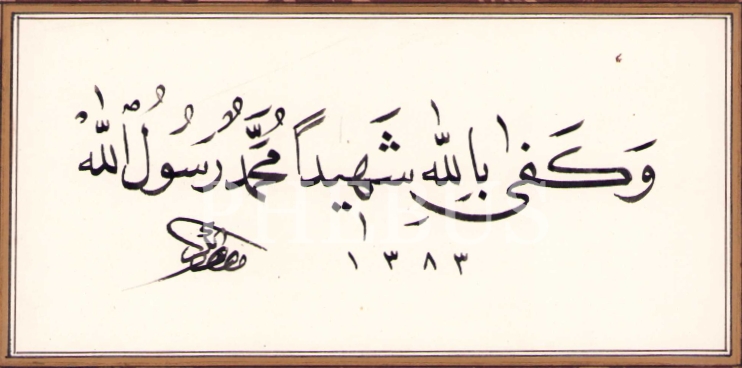 وَكَفىٰ بِاللّٰهِ شَهِيداً مُحَمَّدٌ رَسُولُ ٱللّٰهِ
١٣٨٣
PHEBUS